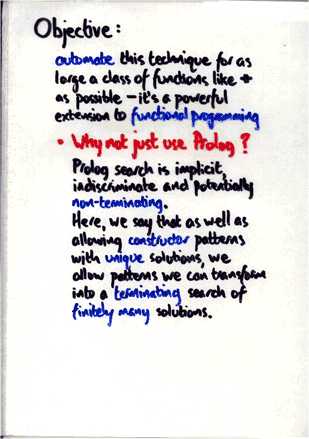 Objective:
automate this technique for as
large a class of functions like ++
as possible - it's a powerful
extension to functional programming
• Why not just use Prolog?
Prolog search is implicit,
indiscriminate and potentially
non-terminating.
Here, we say that as well as
allowing constructor patterns
with unique solutions, we
allow patterns we can transform
into a terminating search of
finitely many solutions.